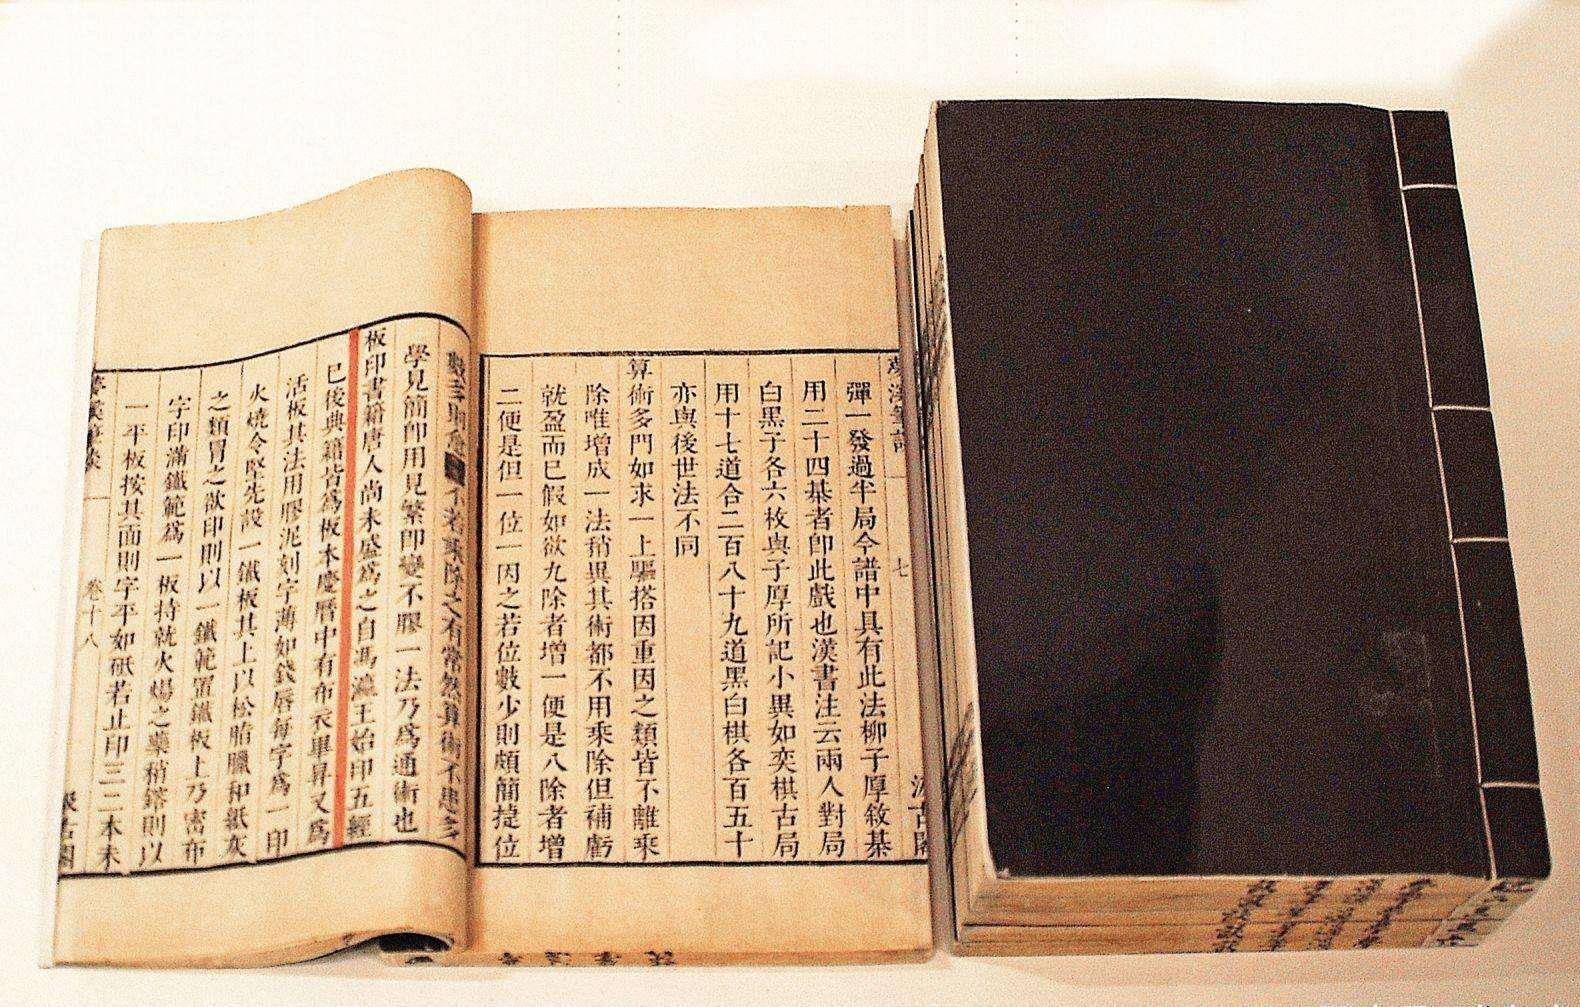 夢溪筆談
七
汲古閣
彈一發過半局今譜中具有此法柳子厚敘棊
用二十四棊者卽此戲也漢書注云兩人對局
白黑子各六枚與子厚所記小異如奕棋古局
用十七道合二百八十九道黑白棋各百五十
亦與後世法不同
算術多門如求一上驅搭因重因之類皆不離乘
除唯增成一法稍異其術都不用乘除但補虧
就盈而已假如欲九除者增一便是八除者增
二便是但一位一因之若位數少則頗簡捷位
數多則愈繁不若乘除之有常然算術不患多
學見簡卽用見繁卽變不膠一法乃爲通術也
板印書籍唐人尚未盛爲之自馮瀛王始印五經
已後典籍皆爲板本慶曆中有布衣畢昇又爲
活板其法用膠泥刻字薄如錢唇每字爲一印
火燒令堅先設一鐵板其上以松脂臘和紙灰
之類冒之欲印則以一鐵範置鐵板上乃密布
字印滿鐵範爲一板持就火煬之藥稍鎔則以
一平板按其面則字平如砥若止印三二本未
夢溪筆談
卷十八
汲古閣